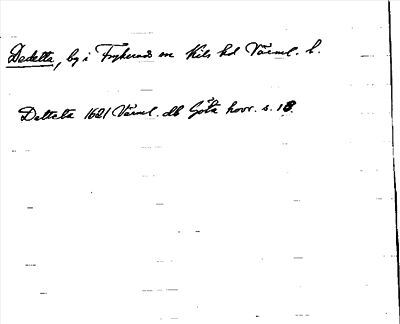 Dedetta, by i Frykerud sn Kils hd Värml. l.
Detteta 1621 Värml. db Göta hovr. s. 18.